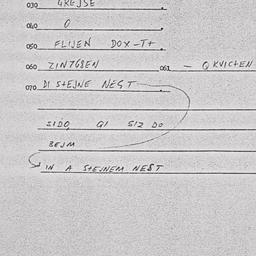 030 GREJSE
040 O
050 FLIJEN DOX-T+
060 ZINTGBEN 061 - Q KVICHEN
070 DI SHEJNE NEST
SIDO, QI SIZ DO
BEJM
IN A SHEJNEM NEST